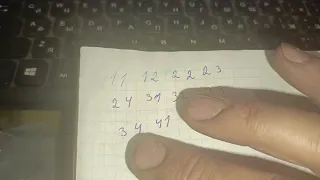 11 12 22 23
24 31 3
34 41